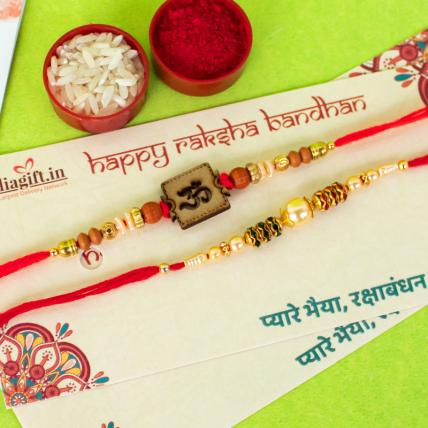 diagift.in
Largest Delivery Network
happy raksha bandhan
ॐ
प्यारे भैया, रक्षाबंधन
प्यारे भैया,